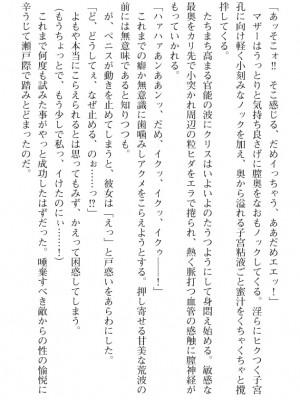 「あっそこォ!! そこ感じる、だめイっちゃう、ああだめエエッ!」
マザーはうっとりと気持ち良さげに膣奥をなおもノックしてくる。淫らにヒクつく子宮
孔に向け軽く小刻みなノックを加え、奥から溢れる子宮粘液ごと蜜汁をくちゃくちゃと攪
拌してくる。
たちまち高まる官能の波にクリスはいよいよのたうつようにして身悶え始める。敏感な
最奥をカリ先で小突かれ周辺の粒ヒダをエラで捲られ、熱く脈打つ血管の感触に膣神経が
もっていかれる。
「ハァハァあンあンッ、だめ、イクッ、イクッ、イクゥー!」
これまでの癖か無意識に歯噛みしアクメをこらえようとする。押し寄せる甘美な荒波の
前には無意味であると知りつつも。
が、ペニスが動きを止めてしまうと、彼女は「えっ」と戸惑いをあらわにした。
「ど、どうしてぇ、なぜ止める、のぉ……っ?」
よもや本当にこらえきれるとは思ってもみず、かえって困惑してしまう。
(もうちょっとで、もう少しで私っ、イけたのにぃ………)
これまで何度も試みた事がやっと成功したはずだった。唾棄すべき敵からの性の愉悦に
辛うじて瀬戸際で踏みとどまったのだ。